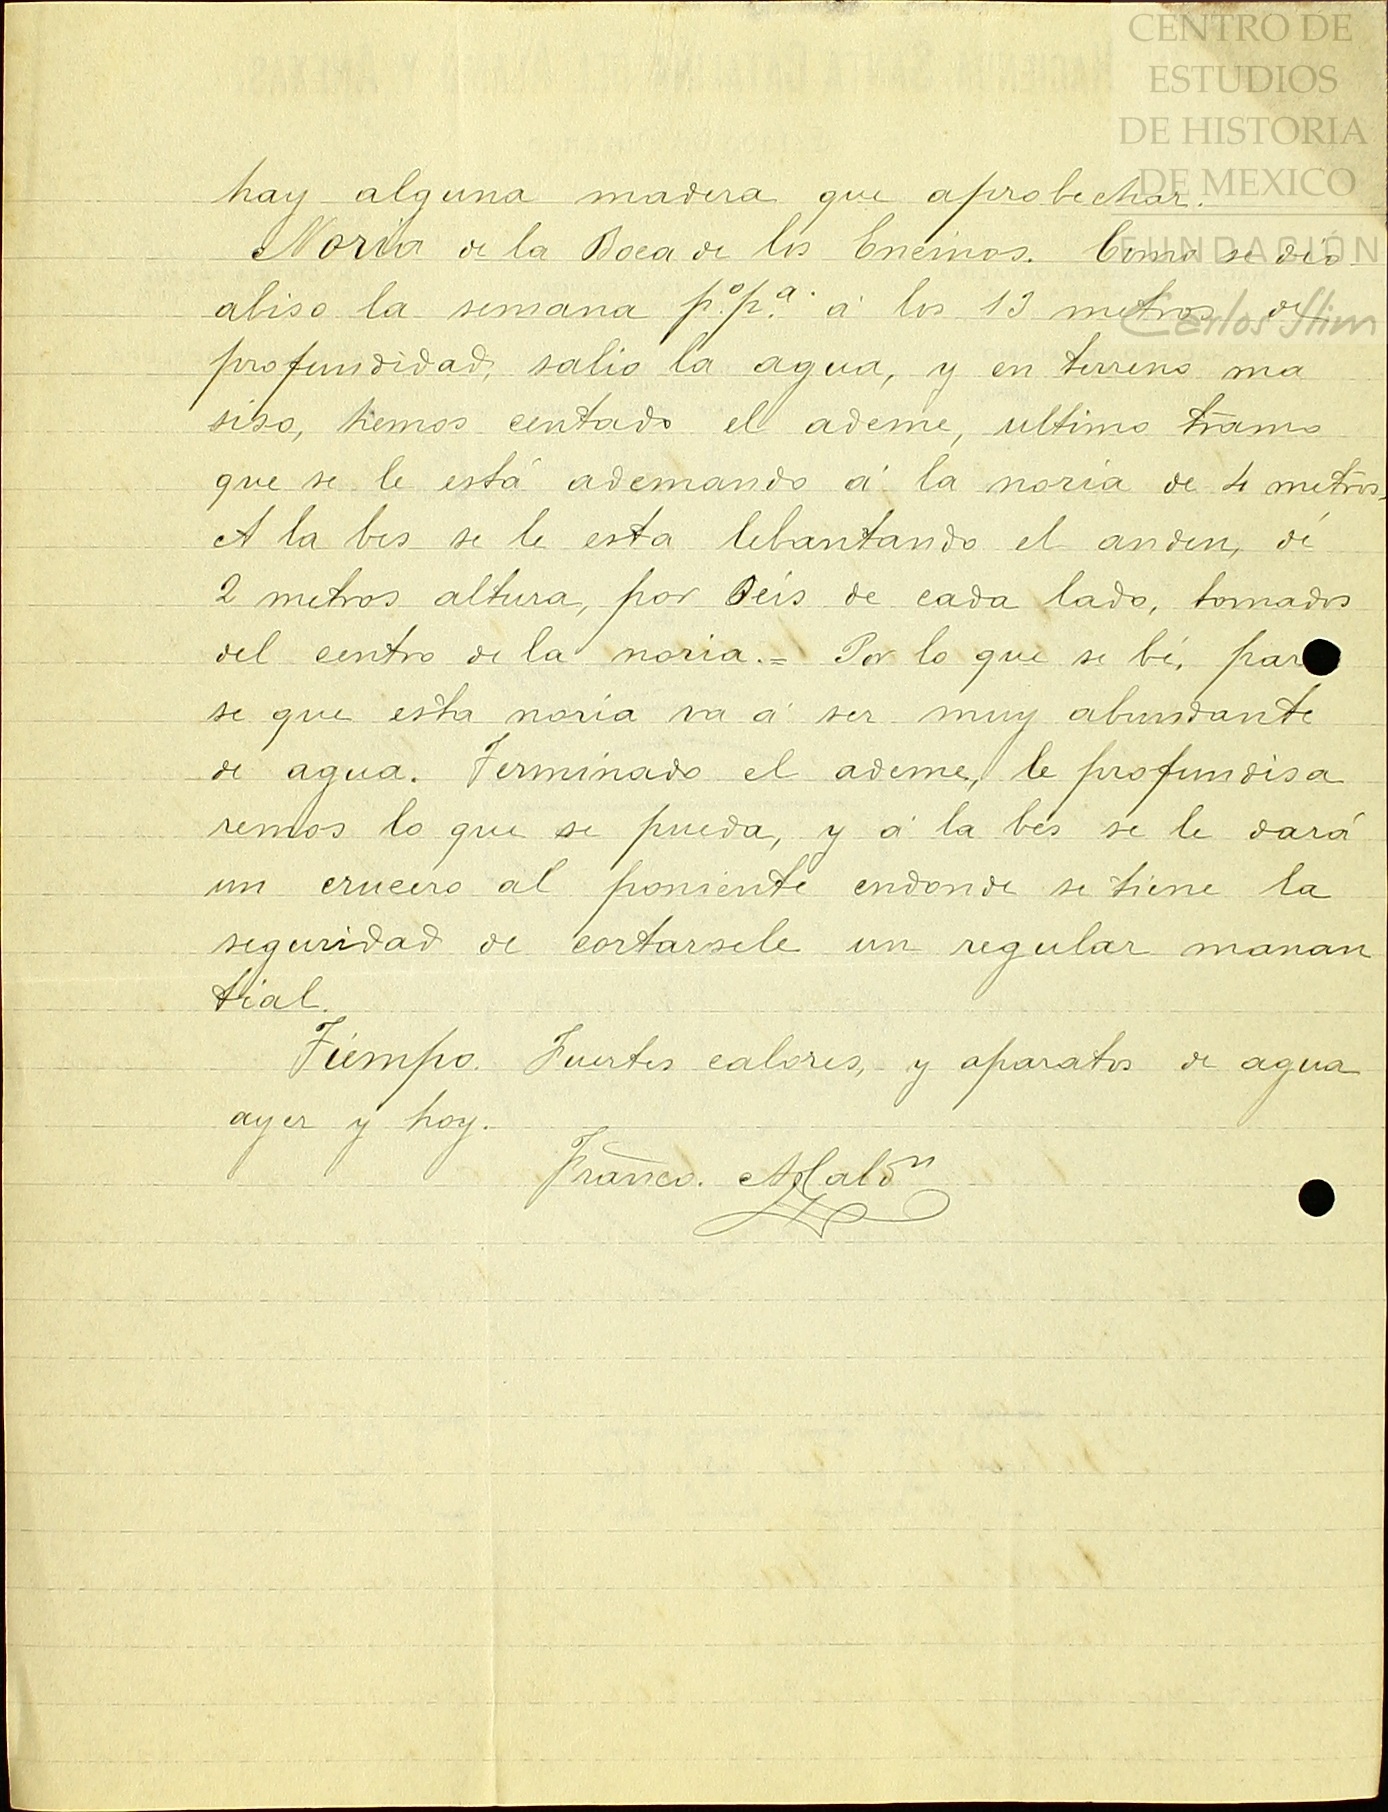 CENTRO DE
ESTUDIOS
DE HISTORIA
DE MEXICO
FUNDACIÓN
Carlos Slim
hay alguna madera que aprobechar.
Noria de la Boca de los Encinos. Como se dió
abiso la semana p.º p.ª á los 13 metros de
profundidad, salio la agua, y en terreno ma
siso, hemos centado el ademe, ultimo tramo
que se le está ademando á la noria de 4 metros.
A la bes se le esta lebantando el anden, de
2 metros altura, por seis de cada lado, tomados
del centro de la noria.= Por lo que se bé, pare
se que esta noria va á ser muy abundante
de agua. Terminado el ademe, le profundisa
remos lo que se pueda, y á la bes se le dará
un crucero al poniente endonde se tiene la
seguridad de cortarsele un regular manan
tial.
Tiempo. Fuertes calores, y aparatos de agua
ayer y hoy.
Franco. Maldn